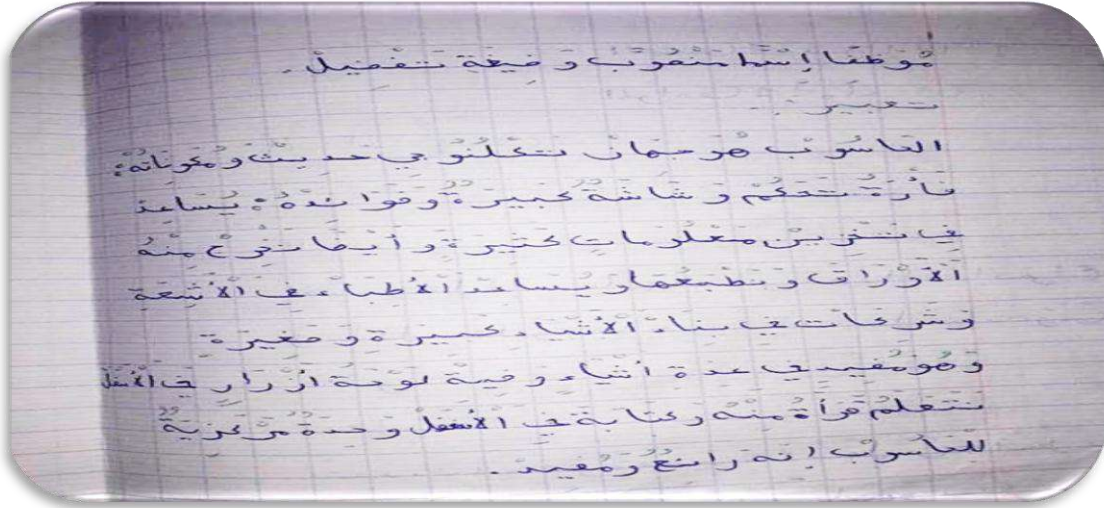 مُوَظِفًا إِسْمًا مَنْصُوبًا وَ صِيغَة تَفْضِيلْ.
تعبير:
الحاسُوب هُوَ جِهازْ تكْلنُوجي حَدِيثْ وَ مُكَوِناتُهُ:
فَأْرَةُ تَحَكُمْ وَ شاشَةٌ كَبيرَةٌ وَفَوَائدُهُ: يُساعِدْ
في تخْزينْ مَعْلُوماتٍ كثِيرَة وَ أيْضًا نَخْرُجْ مِنْهُ
اَلْأَوْرَاق وَ نَطْبَعُهَا وَيُساعِدْ اَلْأَطِبَاءْ في الْأَشِعَةِ
وَشَرِكاتْ في بِناءْ الْأَشْياءْ كبيرة وَ صَغِيرَة
وَهُوَ مُفِيد في عدة أَشْياءٍ وَ فِيهْ لَوْحَةُ أَزْرَارٍ في الْأَسْفَلْ
نتعَلَمُ قِرَأَةُ مِنْهُ وَ كِتابَة في الْأَسْفَلْ وَحِدَةٌ مَرْكَزِيَةٌ
للحاسوب إنه رائعٌ وَ مُفيد.